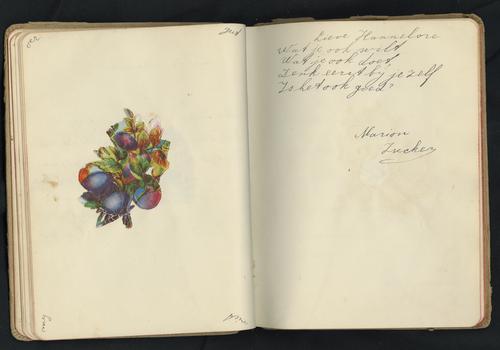 Lieve Hannelore
Wat je ook wilt
Wat je ook doet
Denk eerst bij je zelf
Is het ook goed?
Marion